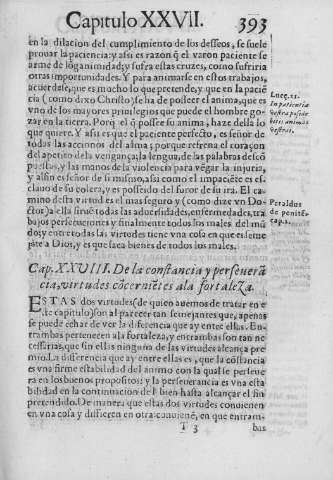 Capitulo XXVII. 393
en la dilacion del cumplimiento de los desseos, se suele
prouar la paciencia: y assi es razon q̃ el varon paciente se
arme de lõganimidad; y sufra estas cruzes, como sufriria
otras importunidades. Y para animarse en estos trabajos,
acuerdese, que es mucho lo que pretende, y que en la paciẽ
cia ( como dixo Christo) se ha de posseer el anima, que es v
no de los mayores priuilegios que puede el hombre go-
zar en la tierra. Porq̃ el q̃ posse su anima, haze della lo
que quiere. Y assi es que el paciente perfecto, es señor de
todas las acciones del alma; porque refrena el coraçon
del apetito de la vengança, la lengua, de las palabras descõ
puestas, y las manos de la violencia para vẽgar la injuria,
y al fin es señor de si mismo, assi como el impaciẽte es es-
clauo de su colera, y es posseido del furor de su ira. El ca-
mino desta virtud es el mas seguro y (como dize vn Do-
ctor) a ella siruẽ todas las aduersidades, enfermedades, tra
bajos persecuciones y finalmente todos los males del mũ
do; y entre todas las virtudes tiene vna cosa en que es seme
jãte a Dios, y es que saca bienes de todos los males.
Luc. 21.
In patientia
vestra posside
bitis animas
vestras.
Peraldus
de penitẽ.
cap. 1.
Cap. XXVIII. De la constancia y perseuerã
cia, virtudes cõcerniẽtes a la fortaleza.
ESTAS dos virtudes (de quien auemos de tratar en e
ste capitulo) son al parecer tan semejantes que, apenas
se puede echar de ver la diferencia que ay entre ellas. En-
trambas pertenecen a la fortaleza, y entrambas son tan ne
cessarias, que sin ellas ninguna de las virtudes alcança pre
mio. La differencia que ay entre ellas es, que la cõstancia
es vna firme estabilidad del animo con la qual se perseue
ra en los buenos propositos: y la perseuerancia es vna esta
bilidad en la continuacion del bien hasta alcançar el fin
pretendido. De manera que estas dos virtudes conuienen
en vna cosa y differen en otra conuienẽ, en que entram-
T 3 bas